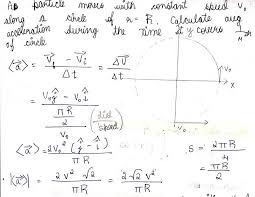 A particle moves with constant speed v₀
along a circle of r = R. Calculate avg
acceleration during the time it covers 1/4 th
of circle
<a⃗> = (V⃗f - V⃗i) / Δt = ΔV⃗ / Δt
= (V₀ĵ - V₀î) / ((πR/2) / V₀) (dist / speed)
<a⃗> = 2V₀² (ĵ - î) / πR
|<a⃗>| = 2V²√2 / πR = 2√2V² / πR
V₀
x
V₀
S = 2πR / 4
= πR / 2